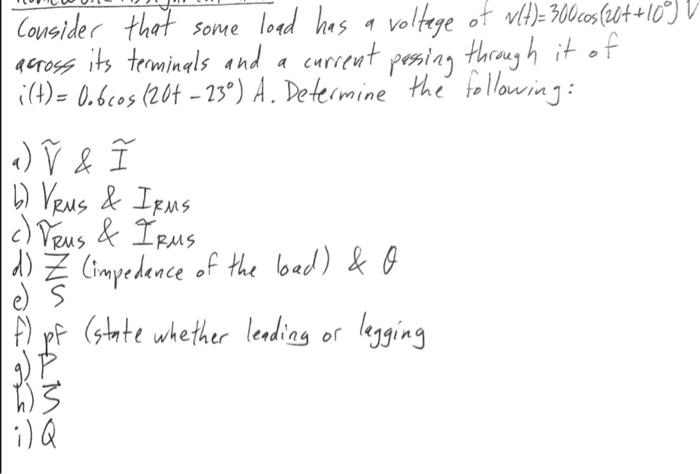 Consider that some load has a voltage of v(t)=300cos(20t+10°) V
across its terminals and a current passing through it of
i(t)= 0.6cos (20t - 23°) A. Determine the following:
a) Ṽ & Ĩ
b) VRMS & IRMS
c) ṼRMS & ĨRMS
d) Z (impedance of the load) & θ
e) S
f) pf (state whether leading or lagging
g) P
h) S⃗
i) Q